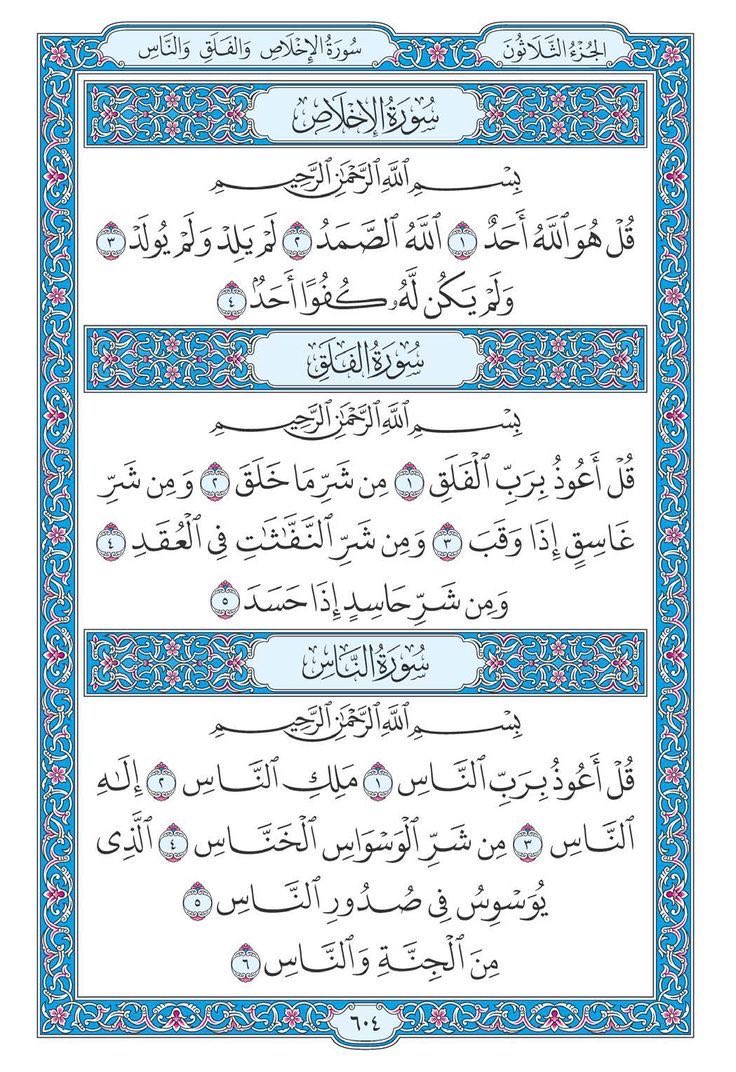 الجُزْءُ الثَّلَاثُونَ
سُورَةُ الإِخْلَاصِ وَالفَلَقِ وَالنَّاسِ
سُورَةُ الإِخْلَاصِ
بِسْمِ ٱللَّهِ ٱلرَّحْمَٰنِ ٱلرَّحِيمِ
قُلْ هُوَ ٱللَّهُ أَحَدٌ ١ ٱللَّهُ ٱلصَّمَدُ ٢ لَمْ يَلِدْ وَلَمْ يُولَدْ ٣
وَلَمْ يَكُن لَّهُۥ كُفُوًا أَحَدٌۢ ٤
سُورَةُ الفَلَقِ
بِسْمِ ٱللَّهِ ٱلرَّحْمَٰنِ ٱلرَّحِيمِ
قُلْ أَعُوذُ بِرَبِّ ٱلْفَلَقِ ١ مِن شَرِّ مَا خَلَقَ ٢ وَمِن شَرِّ
غَاسِقٍ إِذَا وَقَبَ ٣ وَمِن شَرِّ ٱلنَّفَّٰثَٰتِ فِي ٱلْعُقَدِ ٤
وَمِن شَرِّ حَاسِدٍ إِذَا حَسَدَ ٥
سُورَةُ النَّاسِ
بِسْمِ ٱللَّهِ ٱلرَّحْمَٰنِ ٱلرَّحِيمِ
قُلْ أَعُوذُ بِرَبِّ ٱلنَّاسِ ١ مَلِكِ ٱلنَّاسِ ٢ إِلَٰهِ
ٱلنَّاسِ ٣ مِن شَرِّ ٱلْوَسْوَاسِ ٱلْخَنَّاسِ ٤ ٱلَّذِى
يُوَسْوِسُ فِى صُدُورِ ٱلنَّاسِ ٥
مِنَ ٱلْجِنَّةِ وَٱلنَّاسِ ٦
٦٠٤